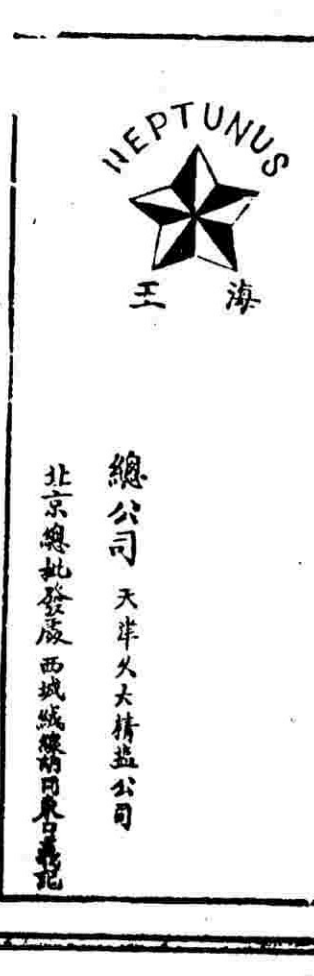 NEPTUNUS
王 海
總公司 天津久大精盐公司
北京總批發處 西城絨線胡同東口義記